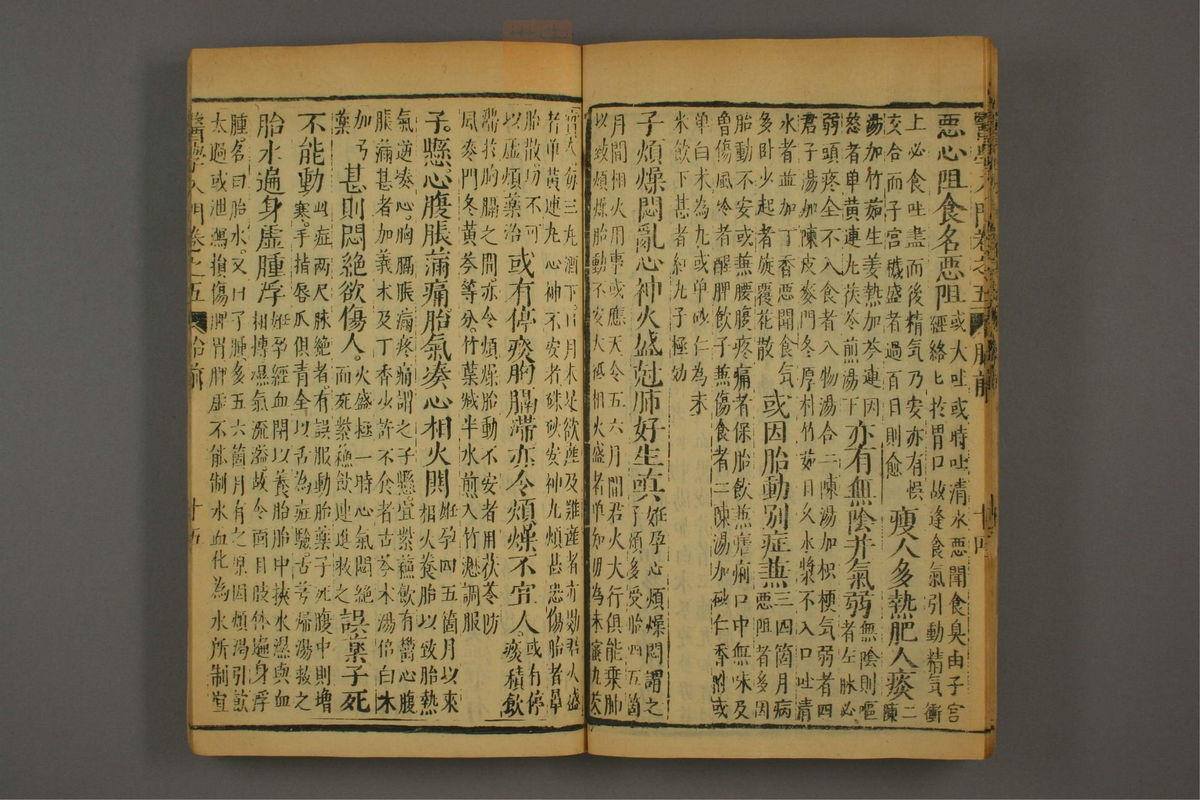 醫學入門卷之五 胎前 十四
惡心阻食名惡阻
或大吐或時吐清水惡聞食臭由子宮
經絡匕於胃口故逢食氣引動精气衝
上必食吐盡而後精气乃安亦有悞
交合而子宮穢盛者過百日則愈
瘦人多熱肥人痰
二陳
湯加竹茹生姜熱加芩連因
怒者单黄連丸茯苓煎湯下
亦有無陰并氣弱
無陰則嘔
者左脉必
弱頭疼全不入食者入物湯合二陳湯加枳梗气弱者四
君子湯加陳皮麥門冬厚朴竹茹日久水漿不入口吐清
水者並加丁香惡聞食气
多卧少起者旋覆花散
或因胎動別症兼
三四箇月病
惡阻者多因
胎動不安或兼腰腹疼痛者保胎飲兼瘧痢口中無味及
曾傷風冷者醒脾飲子兼傷食者二陳湯加砂仁香附或
单白朮為丸或单砂仁為末
米飲下甚者紅丸子極効
子煩燥悶亂心神火盛尅肺好生嗔
姙孕心煩燥悶謂之
子煩多受胎四五箇
月間相火用事或應天令五六月間君火大行俱能乗肺
以致煩燥胎動不安大抵相火盛者单知母為末蜜丸芡
實大每三丸酒下日月未足欲産及難産者亦効君火盛
者单黄連丸心神不安者硃砂安神丸煩甚恐傷胎者罩
胎散切不可
以虚煩藥治
或有停痰胸膈滯亦令煩燥不宜人。
或有停
痰積飲
滯於胸膈之間亦令煩燥胎動不安者用茯苓防
風麥門冬黄芩等分竹葉减半水煎入竹瀝調服
子。懸心腹脹滿痛胎氣凑心相火関
姙孕四五箇月以來
相火養胎以致胎熱
氣逆凑心。胸膈脹滿疼痛謂之子懸宜紫蘓飲有欝心腹
脹滿甚者加莪朮及丁香少許不食者古芩朮湯倍白朮
加芎
藥
甚則悶絶欲傷人。
火盛極一時心氣悶絶
而死紫蘓飲連進救之
誤藥子死
不能動
此症兩尺脉絶者有誤服動胎藥子死腹中則增
寒手指唇爪俱青全以舌為症驗古芎歸湯救之
胎水遍身虛腫浮
姙孕經血閉以養胎胎中挾水濕與血
相搏濕氣流溢故令面目肢体遍身浮
腫名曰胎水又曰子腫多五六箇月有之原因煩渴引飲
太過或泄瀉損傷脾胃脾虛不能制水血化為水所制宜
醫學入門卷之五 胎前 十五